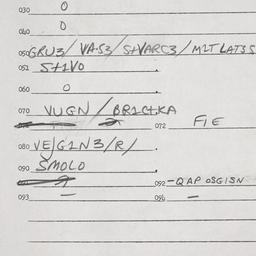 030 0
040 0
050 GRU3/VA-S3/S+VARC3/M2TLAT3S
051 S+1VO
060 0
070 VUGN/BR1C+KA
072 FIE
080 VE/G2N3/R/
090 SMOLO
092 -QAP OSG1SN
093 —
096 —